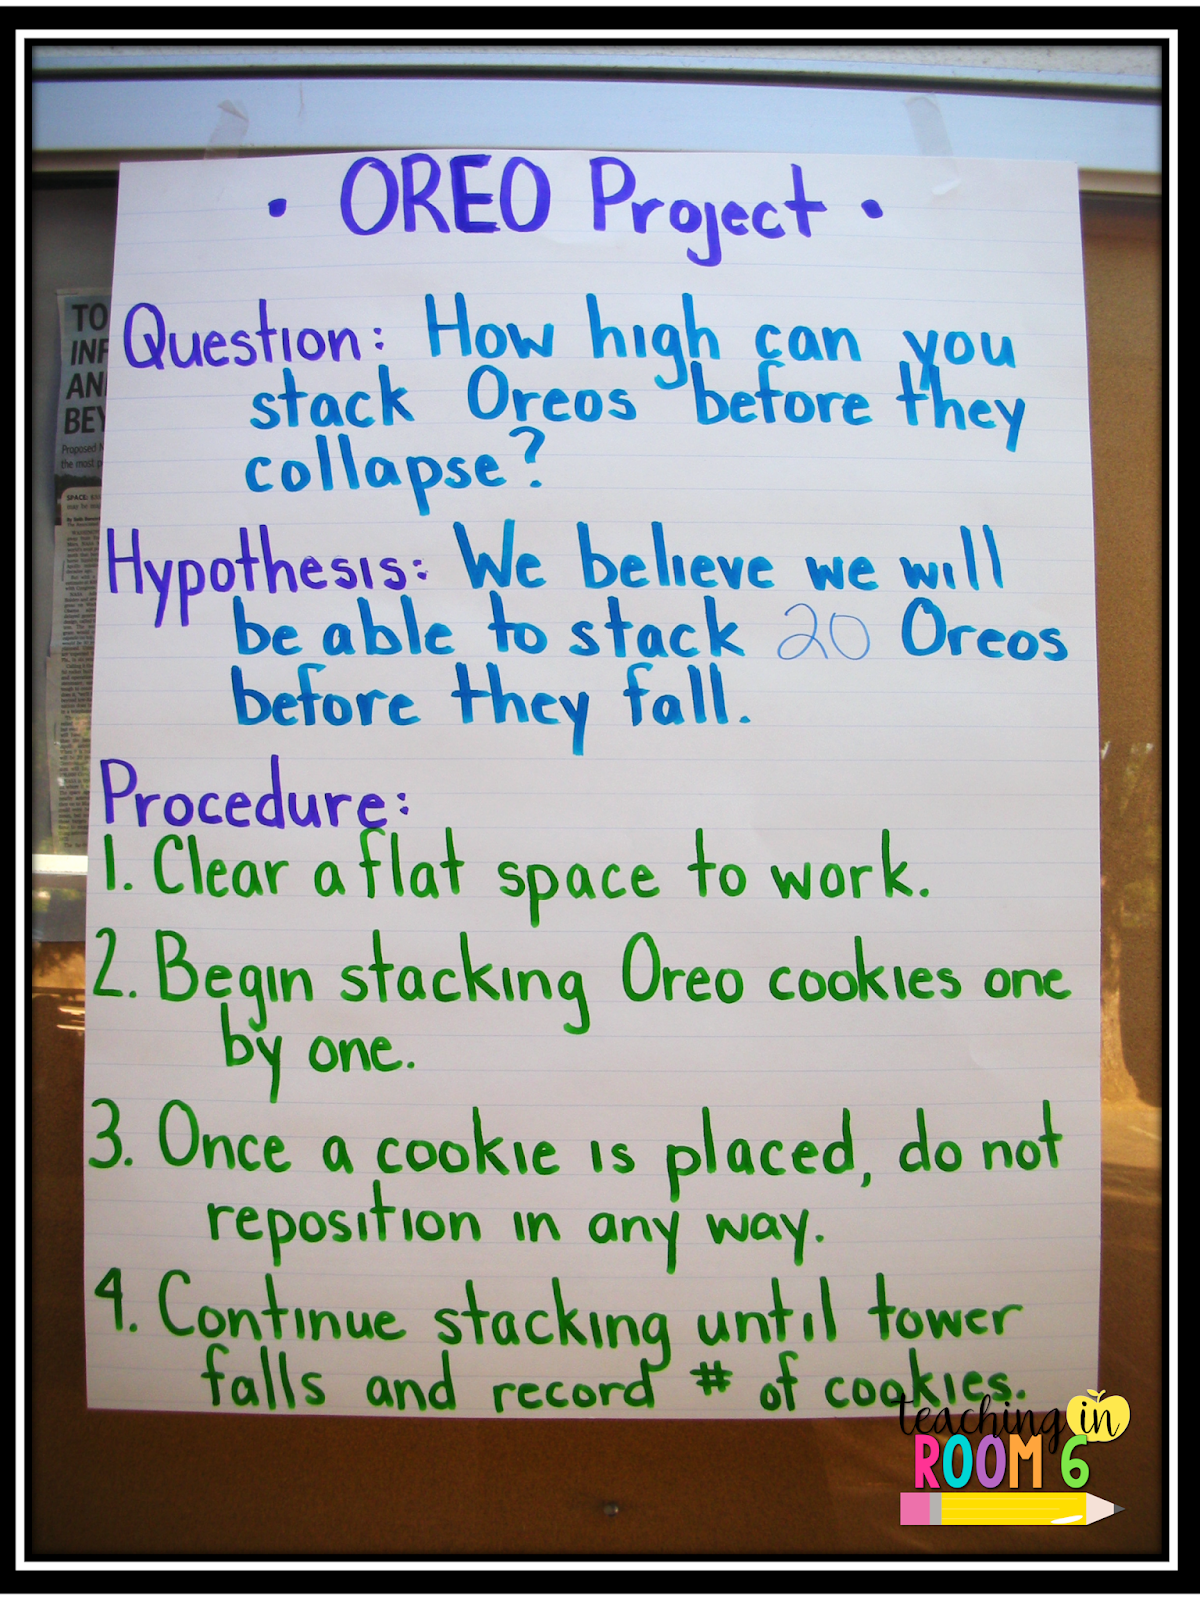 • OREO Project •
Question: How high can you
stack Oreos before they
collapse?
Hypothesis: We believe we will
be able to stack 20 Oreos
before they fall.
Procedure:
1. Clear a flat space to work.
2. Begin stacking Oreo cookies one
by one.
3. Once a cookie is placed, do not
reposition in any way.
4. Continue stacking until tower
falls and record # of cookies.
TO
INF
AN
BEY
Proposed
the most p
SPACE:
teaching in
ROOM 6